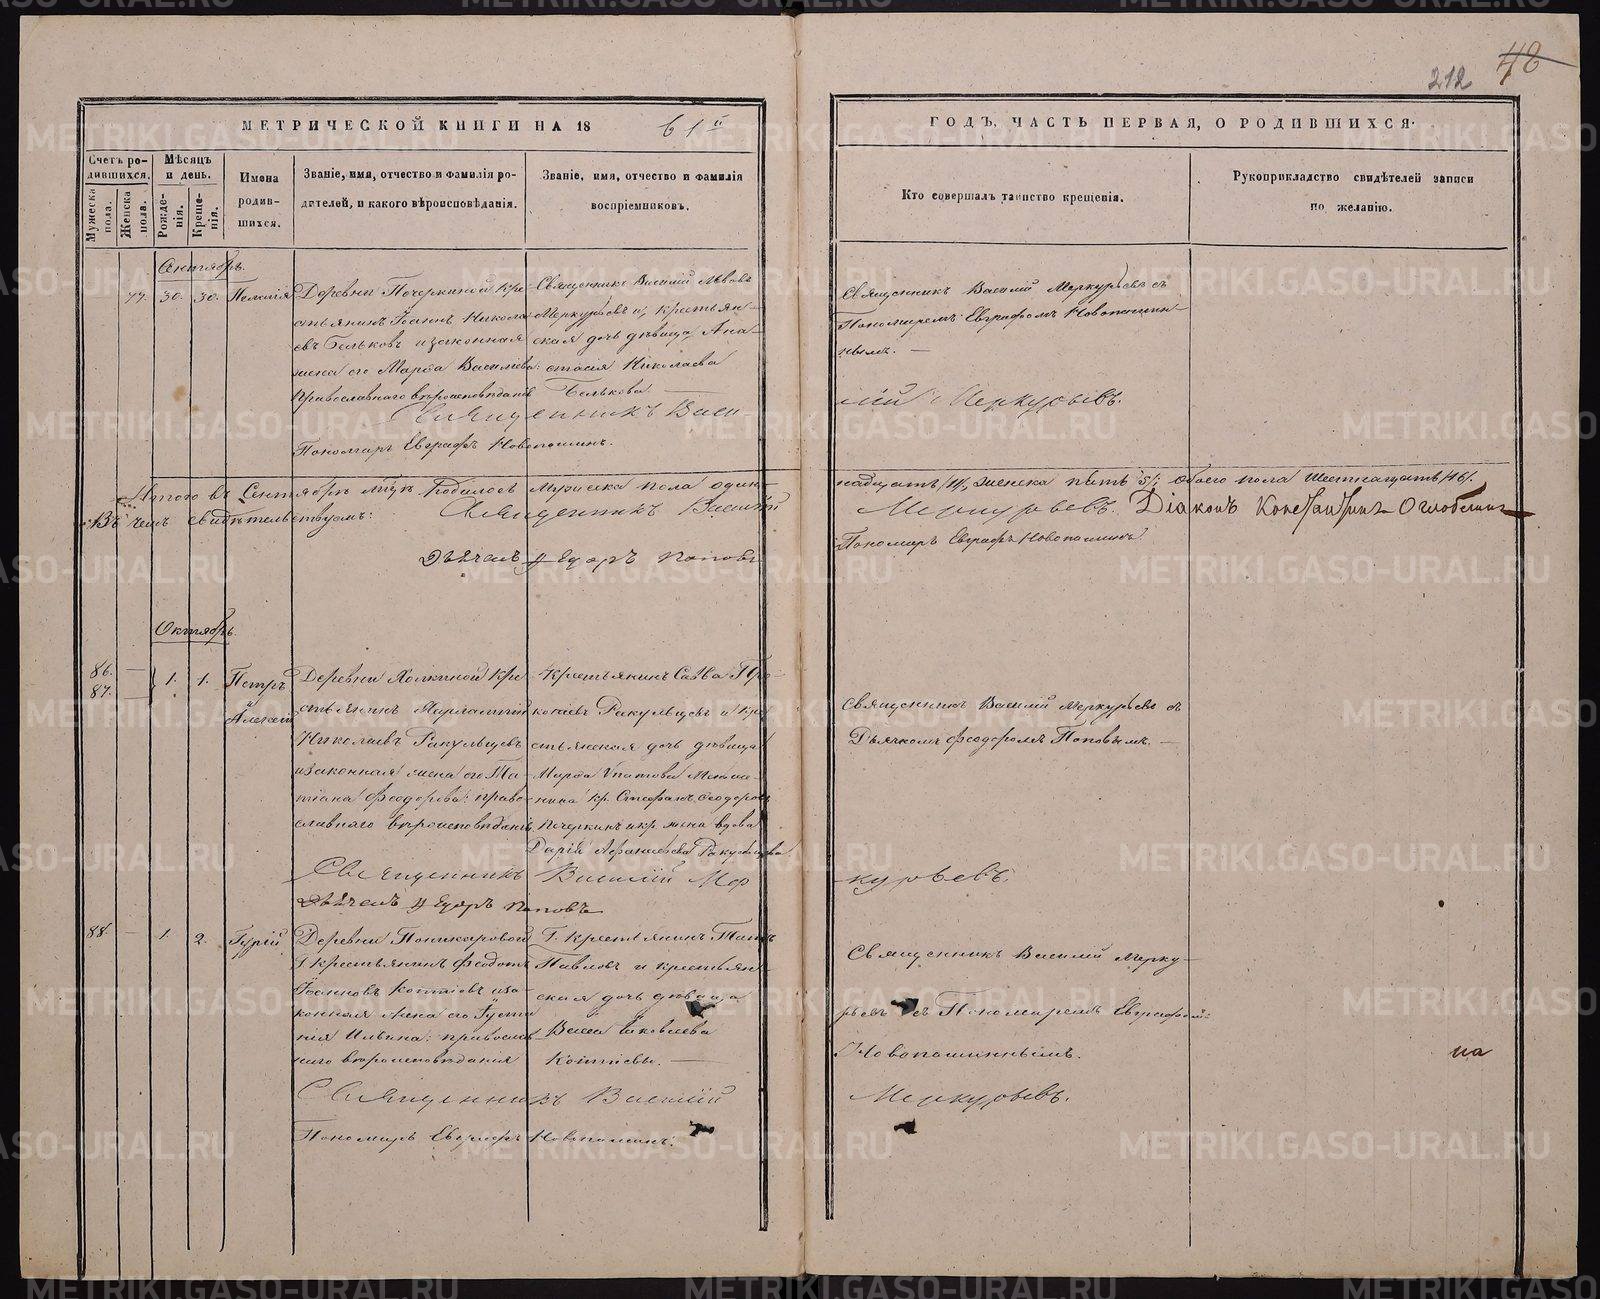 212 48
МЕТРИЧЕСКОЙ КНИГИ НА 18 61й
ГОДЪ, ЧАСТЬ ПЕРВАЯ, О РОДИВШИХСЯ.
Счетъ родившихся.
Мужеска пола.
Женска пола.
Мѣсяцъ и день.
Рожденія.
Крещенія.
Имена родившихся.
Званіе, имя, отчество и фамилія родителей, и какого вѣроисповѣданія.
Званіе, имя, отчество и фамилія воспріемниковъ.
Кто совершалъ таинство крещенія.
Рукоприкладство свидѣтелей записи по желанію.
Сентябрь.
77. 30. 30. Пелагія
Деревни Печеркиной кре-
стьянинъ Іоаннъ Никола-
евъ Бельковъ и законная
жена его Марѳа Васильева:
православнаго вѣроисповѣданія
Священникъ Василій Львовъ
Меркурьевъ и крестьян-
ская дочь дѣвица Ана-
стасія Николаева
Белькова —
Священникъ Василій Меркурьевъ съ
Пономаремъ Евграфомъ Новопашин-
нымъ. —
Священникъ Васи-
лій Меркурьевъ.
Пономарь Евграфъ Новопашинъ.
Итого въ Сентябрѣ м-цѣ родилось мужеска пола один-
надцать /11/, женска пять /5/, обоего пола шестнадцать /16/.
Въ чемъ свидѣтельствуемъ: Священникъ Василій
Меркурьевъ. Діаконъ Константинъ Оглоблинъ
Пономарь Евграфъ Новопашинъ
Дьячекъ Ѳедоръ Поповъ
Октябрь.
86. —
87. —
1. 1. Петръ
и
Алексѣй
Деревни Холкиной кре-
стьянинъ Харлампій
Николаевъ Ракульцевъ
и законная жена его Та-
тіана Ѳеодорова: право-
славнаго вѣроисповѣданія
Крестьянинъ Савва Про-
копіевъ Ракульцевъ и кре-
стьянская дочь дѣвица
Марѳа Ипатова
кр. Стефанъ Ѳеодоровъ
Печеркинъ и кр. жена вдова
Дарія Аѳанасьева Ракульцева
Священникъ Василій Меркурьевъ съ
Дьячкомъ Ѳеодоромъ Поповымъ. —
Священникъ Василій Мер
курьевъ.
Дьячекъ Ѳедоръ Поповъ
88. — 1. 2. Гурій
Деревни
Г. крестьянинъ Ѳедотъ
Іоанновъ Коптіевъ и за-
конная жена его Іусти-
нія Ильина: православ-
наго вѣроисповѣданія
Г. крестьянинъ
Павловъ и крестьян-
ская дочь дѣвица
Васса Яковлева
Коптіевы. —
Священникъ Василій Мерку-
рьевъ съ Пономаремъ Евграфомъ
Новопашиннымъ.
на
Священникъ Василій
Меркурьевъ.
Пономарь Евграфъ Новопашинъ.
METRIKI.GASO-URAL.RU